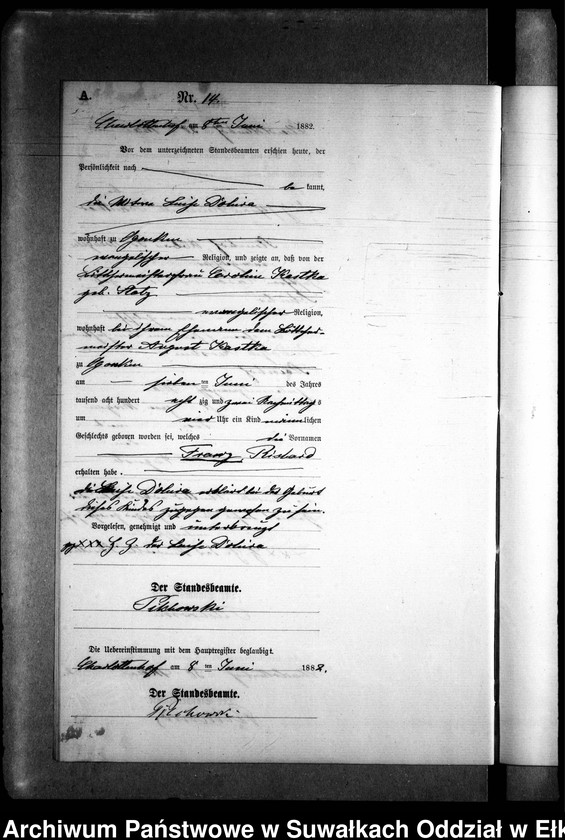 A.
Nr. 14.
Charlottenhof am 8ten Juni 1882.
Vor dem unterzeichneten Standesbeamten erschien heute, der
Persönlichkeit nach
be kannt,
die Luise Dobira
wohnhaft zu
evangelischer Religion, und zeigte an, daß von der
Caroline Kostka
geb.
evangelischer Religion,
wohnhaft bei ihrem Ehemann dem
meister August Kostka
zu
am sieben ten Juni des Jahres
tausend acht hundert acht zig und zwei Nachmittags
um vier Uhr ein Kind männlichen
Geschlechts geboren worden sei, welches die Vornamen
Franz Richard
erhalten habe.
die Luise Dobira erklärt bei der Geburt
dieses Kindes zugegen gewesen zu sein.
Vorgelesen, genehmigt und unterkreuzt
xxx H. Z. der Luise Dobira
Der Standesbeamte.
Die Uebereinstimmung mit dem Hauptregister beglaubigt.
Charlottenhof am 8 ten Juni 1882.
Der Standesbeamte.
Archiwum Państwowe w Suwałkach Oddział w Ełk